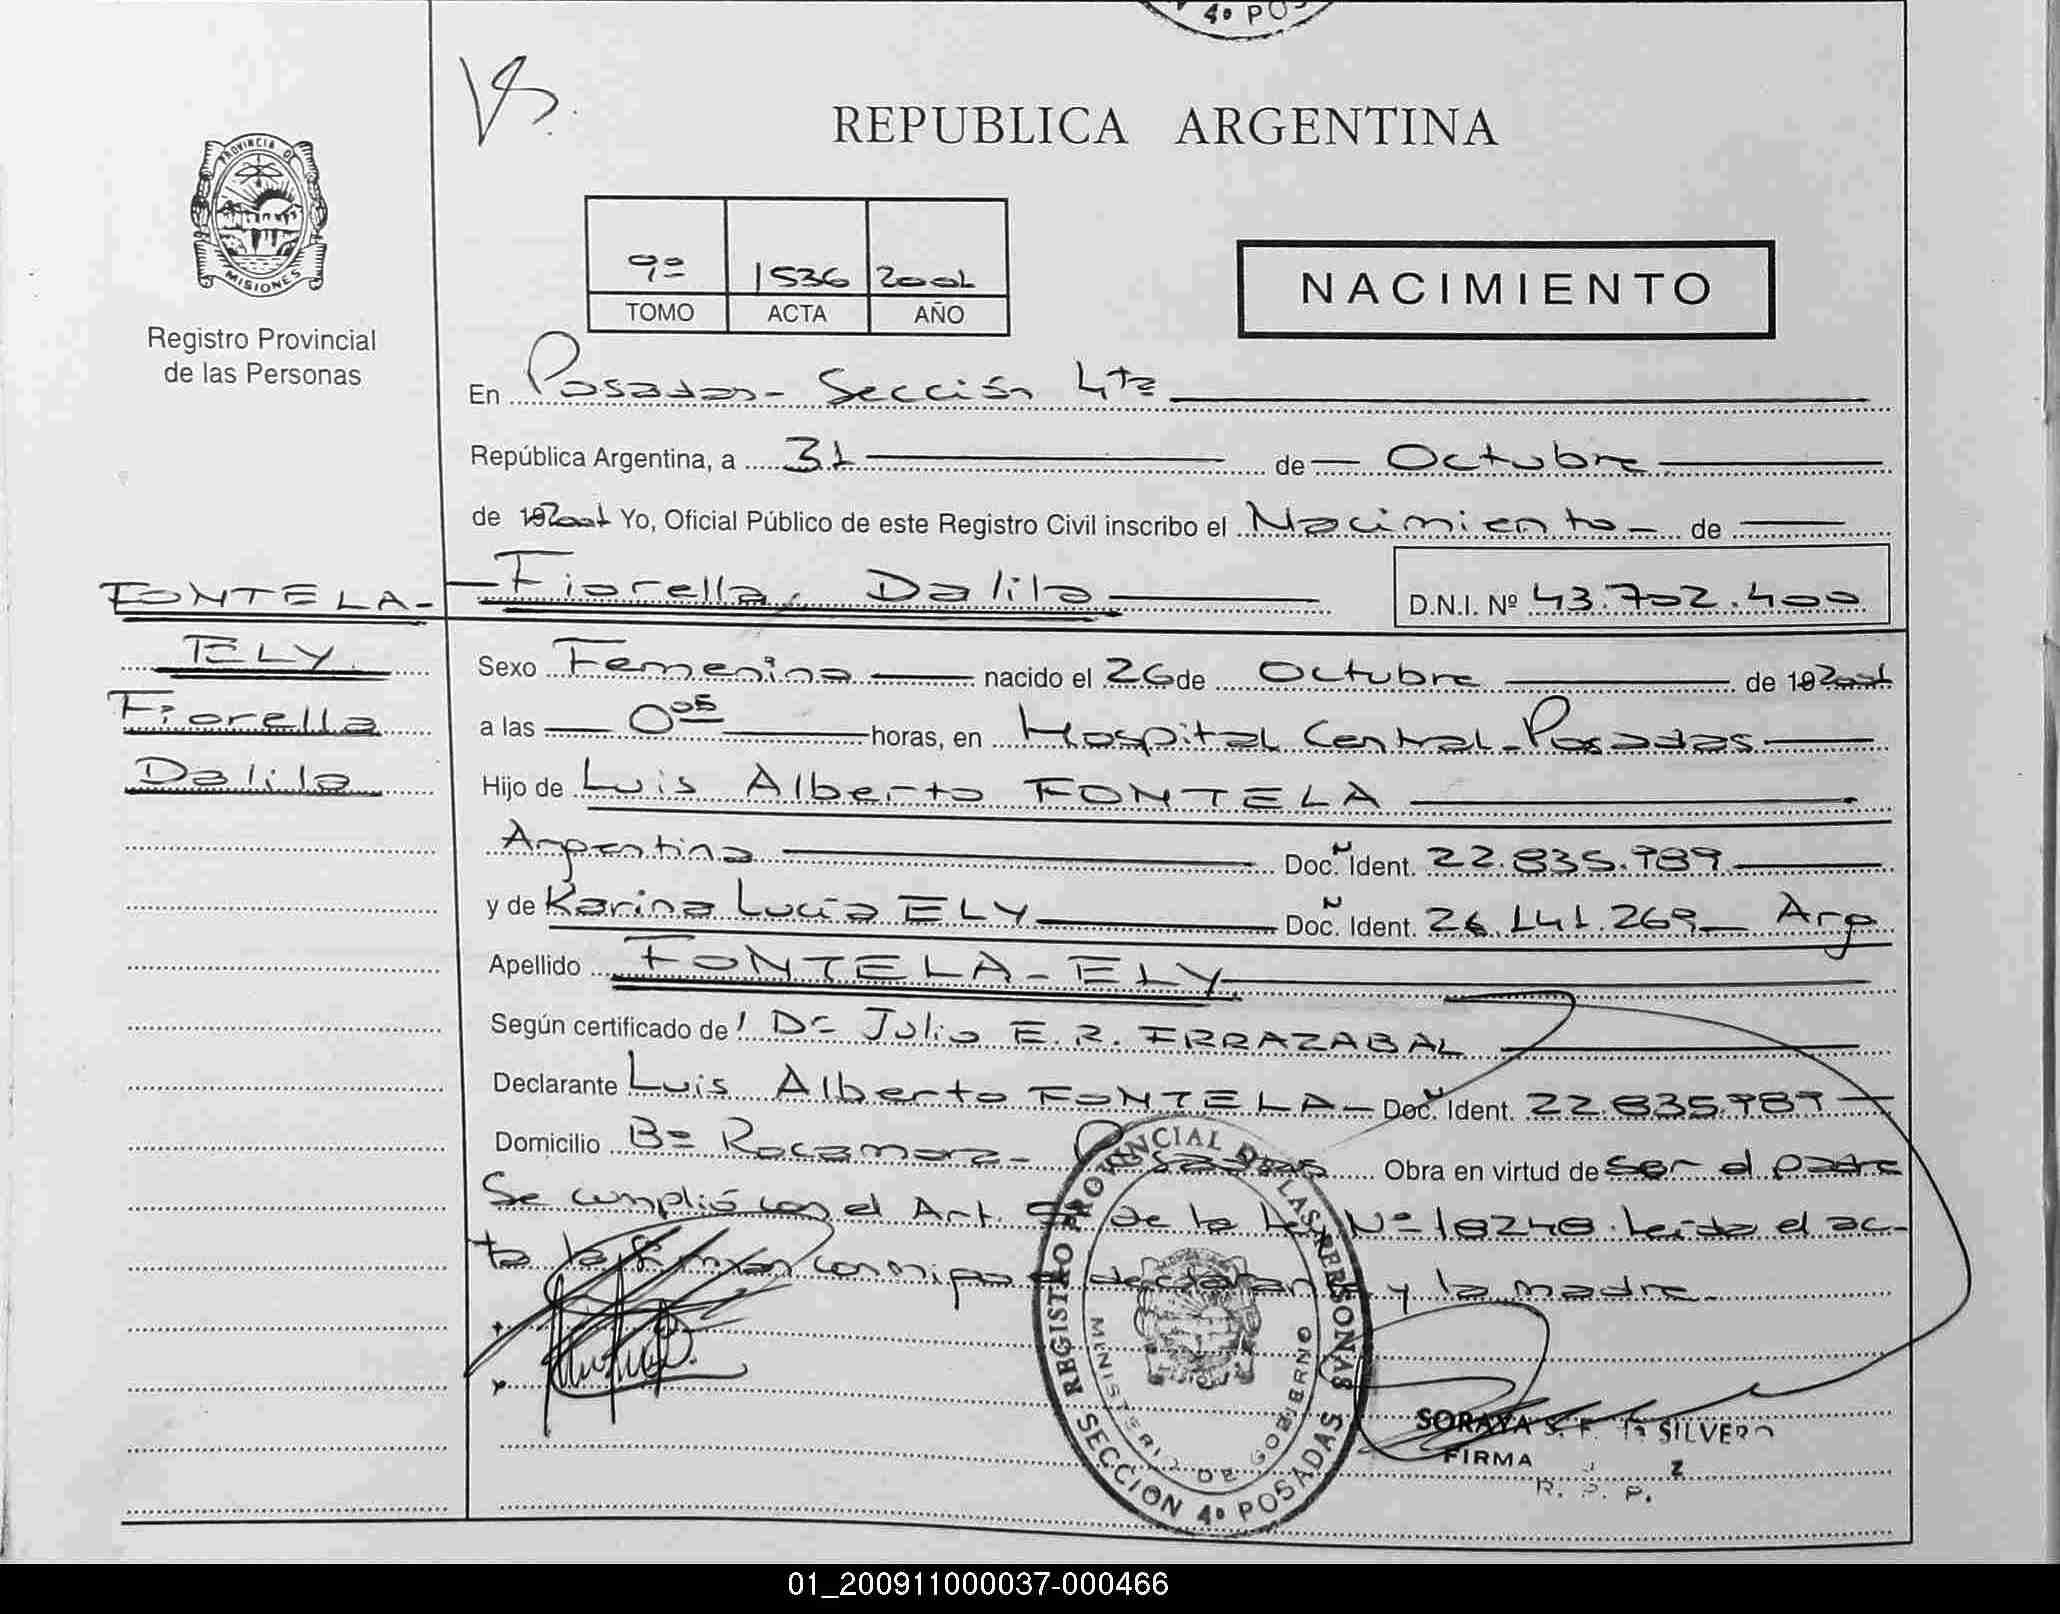 4º PO
VS.
REPUBLICA ARGENTINA
PROVINCIA DE
MISIONES
Registro Provincial
de las Personas
9º 1536 2001
TOMO ACTA AÑO
NACIMIENTO
En Posadas - Sección 4ta
República Argentina, a 31 de Octubre
de 192001 Yo, Oficial Público de este Registro Civil inscribo el Nacimiento de
FONTELA - Fiorella, Dalila D.N.I. Nº 43.702.400
ELY Sexo Femenina nacido el 26 de Octubre de 192001
Fiorella a las 0 05 horas, en Hospital Central - Posadas
Dalila Hijo de Luis Alberto FONTELA
Argentina Doc. N Ident. 22.835.989
y de Karina Lucía ELY Doc. N Ident. 26.141.269 Arg
Apellido FONTELA - ELY
Según certificado de l Dr Julio E. R. IRRAZABAL
Declarante Luis Alberto FONTELA - Doc. N Ident. 22.835.989
Domicilio Bº Rocamora - Posadas Obra en virtud de ser el padre
Se cumplió con el Art. de la Ley Nº 18248. Leída el ac-
ta la firman conmigo el declarante y la madre.
REGISTRO PROVINCIAL DE LAS PERSONAS
MINISTERIO DE GOBIERNO
SECCION 4º POSADAS
SORAYA S. F. SILVERO
FIRMA
R. P. P.
01_200911000037-000466